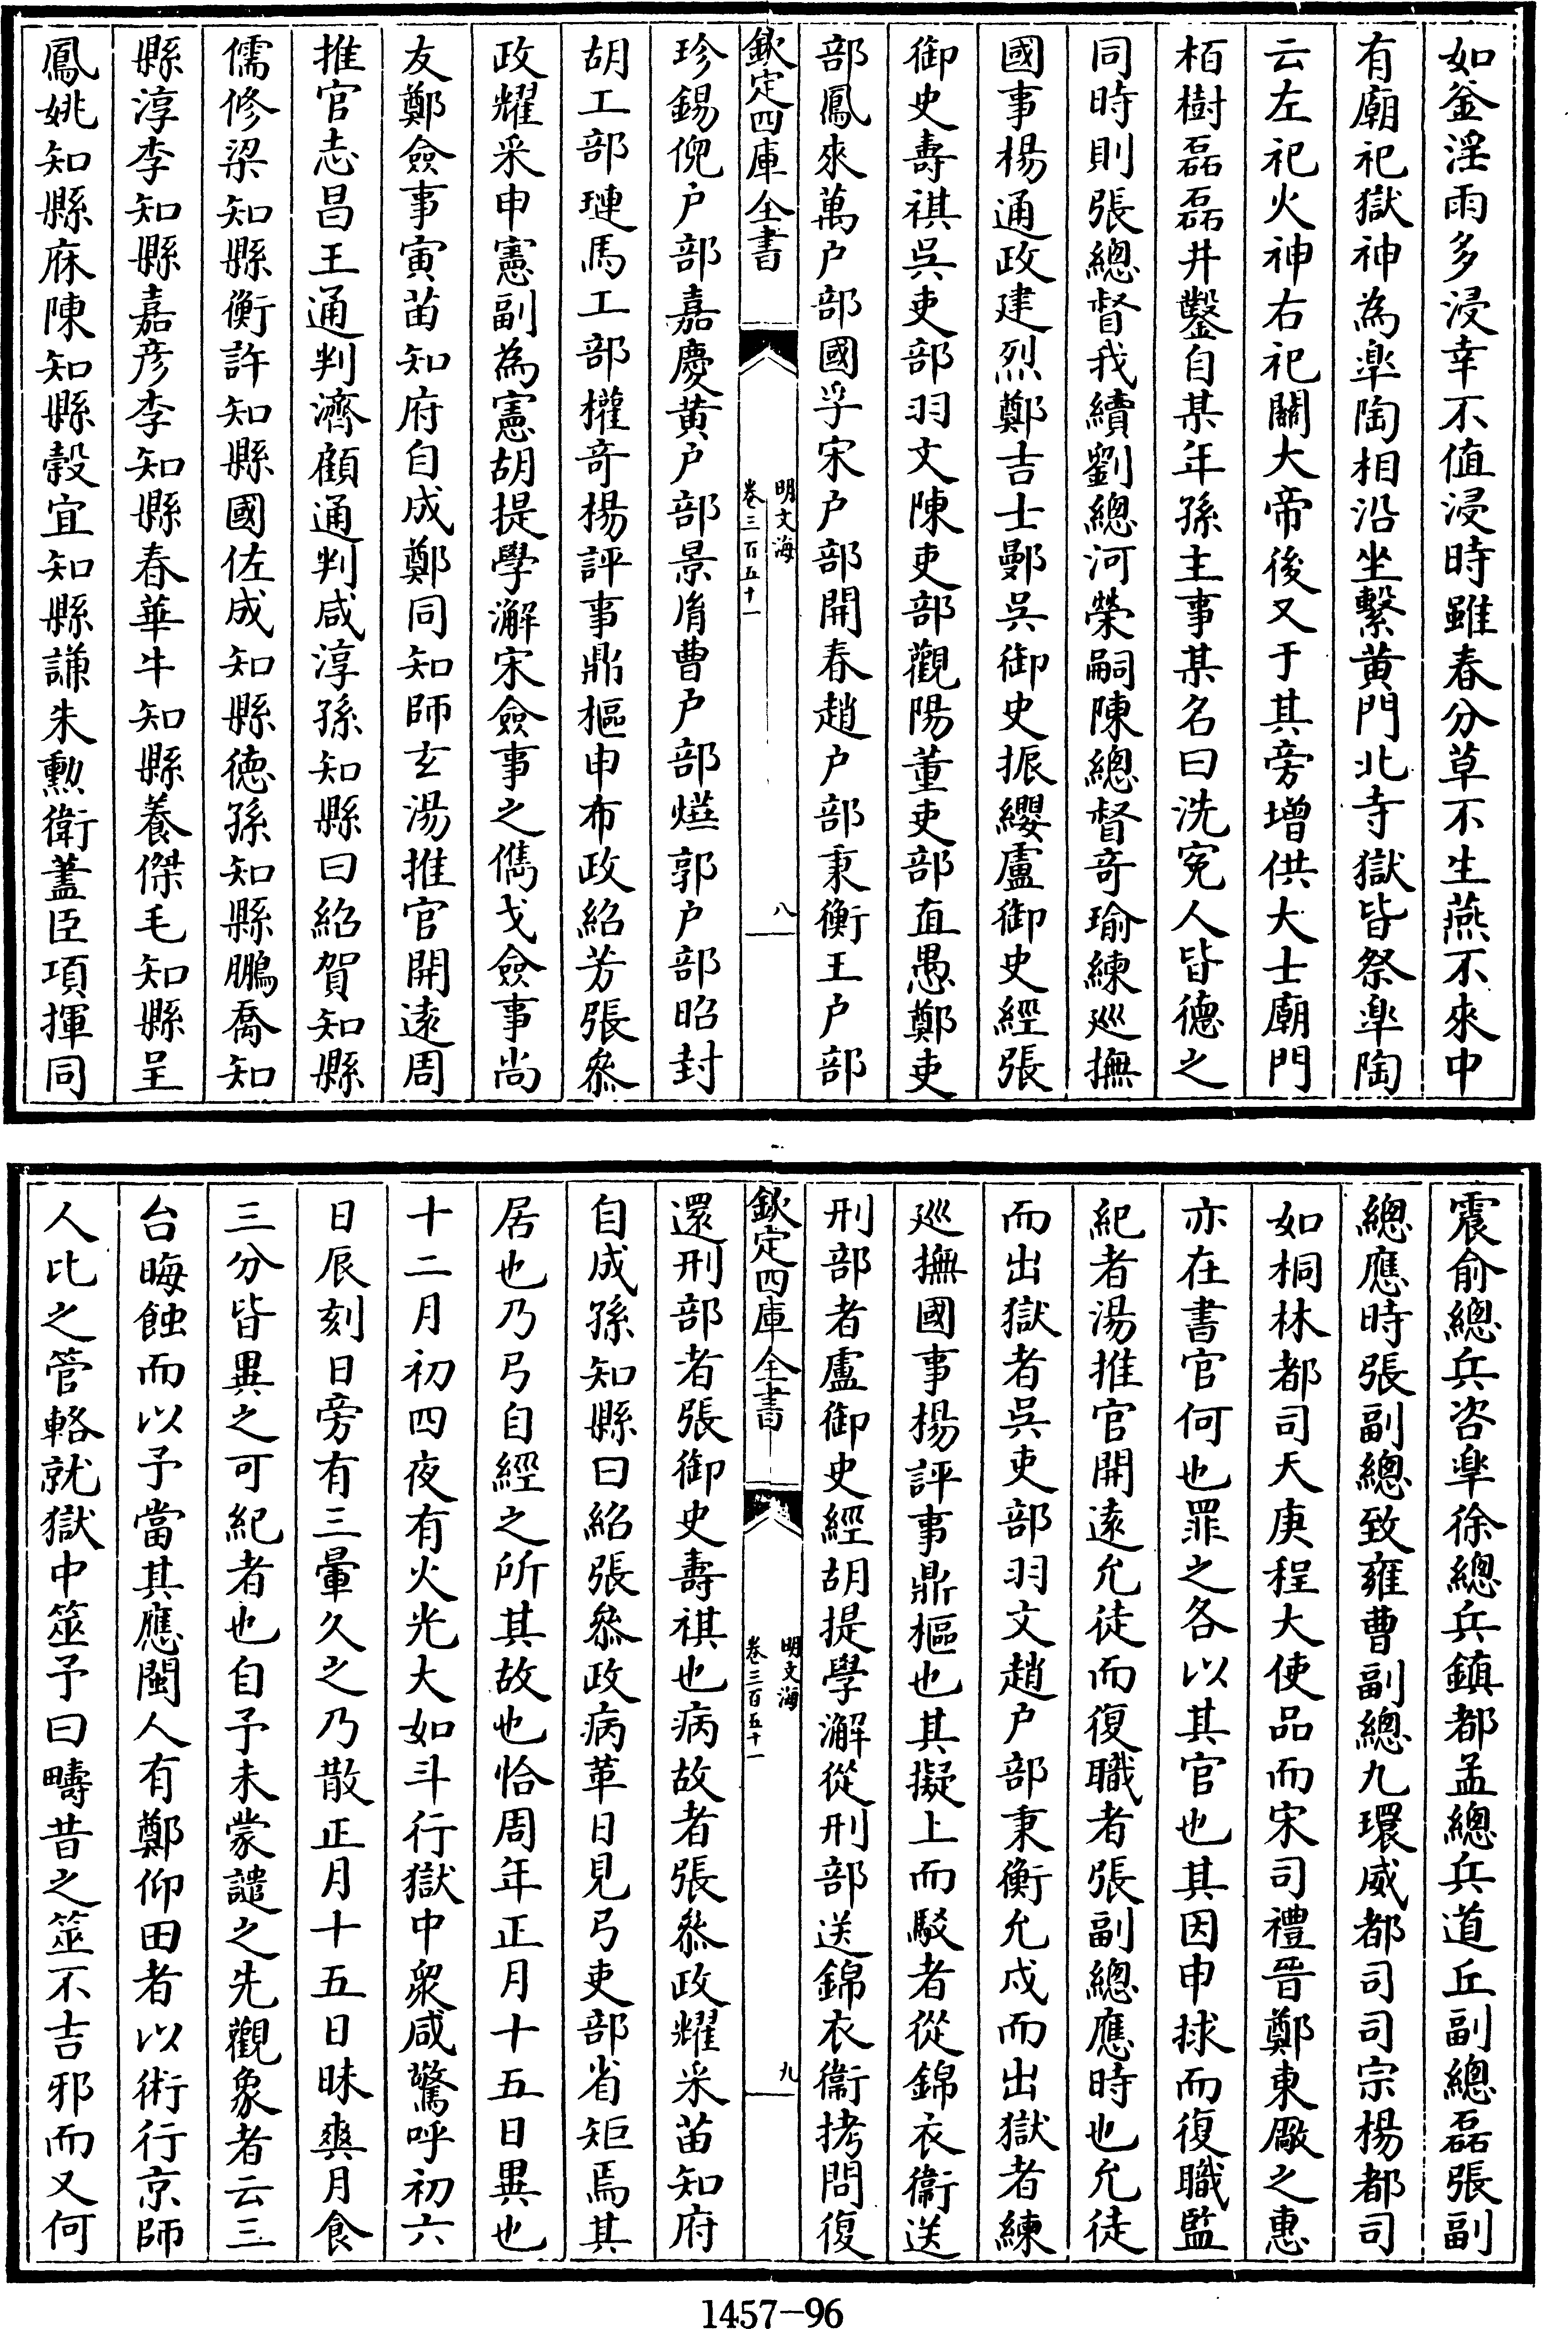 如釜淫雨多浸幸不值浸時雖春分草不生燕不來中
有廟祀獄神為臯陶相沿坐繫黄門北寺獄皆祭臯陶
云左祀火神右祀關大帝後又于其旁增供大士廟門
栢樹磊磊井鑿自某年孫主事某名曰洗寃人皆德之
同時則張總督我續劉總河榮嗣陳總督奇瑜練廵撫
國事楊通政建烈鄭吉士鄤吳御史振纓盧御史經張
御史壽祺吳吏部羽文陳吏部觀陽董吏部直愚鄭吏
部鳳來萬户部國孚宋户部開春趙户部秉衡王户部
欽定四庫全書
明文海
卷三百五十一
八
珍錫倪户部嘉慶黄户部景胤曹户部爃郭户部昭封
胡工部璉馬工部權奇楊評事鼎樞申布政紹芳張叅
政耀采申憲副為憲胡提學澥宋僉事之儁戈僉事尚
友鄭僉事寅苖知府自成鄭同知師玄湯推官開遠周
推官志昌王通判濟顧通判咸淳孫知縣曰紹賀知縣
儒修梁知縣衡許知縣國佐成知縣德孫知縣鵬喬知
縣淳李知縣嘉彦李知縣春華牛知縣養傑毛知縣呈
鳳姚知縣庥陳知縣榖宜知縣謙朱勲衛藎臣項揮同
震俞總兵咨臯徐總兵鎮都孟總兵道丘副總磊張副
總應時張副總致雍曹副總九環威都司司宗楊都司
如桐林都司天庚程大使品而宋司禮晉鄭東厰之惠
亦在書官何也罪之各以其官也其因申捄而復職監
紀者湯推官開遠允徒而復職者張副總應時也允徒
而出獄者吳吏部羽文趙户部秉衡允戍而出獄者練
廵撫國事楊評事鼎樞也其擬上而駁者從錦衣衞送
刑部者盧御史經胡提學澥從刑部送錦衣衞拷問復
欽定四庫全書
明文海
卷三百五十一
九
還刑部者張御史壽祺也病故者張叅政耀采苖知府
自成孫知縣曰紹張叅政病革日見弓吏部省矩焉其
居也乃弓自經之所其故也恰周年正月十五日異也
十二月初四夜有火光大如斗行獄中衆咸驚呼初六
日辰刻日旁有三暈久之乃散正月十五日昧爽月食
三分皆異之可紀者也自予未蒙譴之先觀象者云三
台晦蝕而以予當其應閩人有鄭仰田者以術行京師
人比之管輅就獄中筮予曰疇昔之筮不吉邪而又何
1457-96